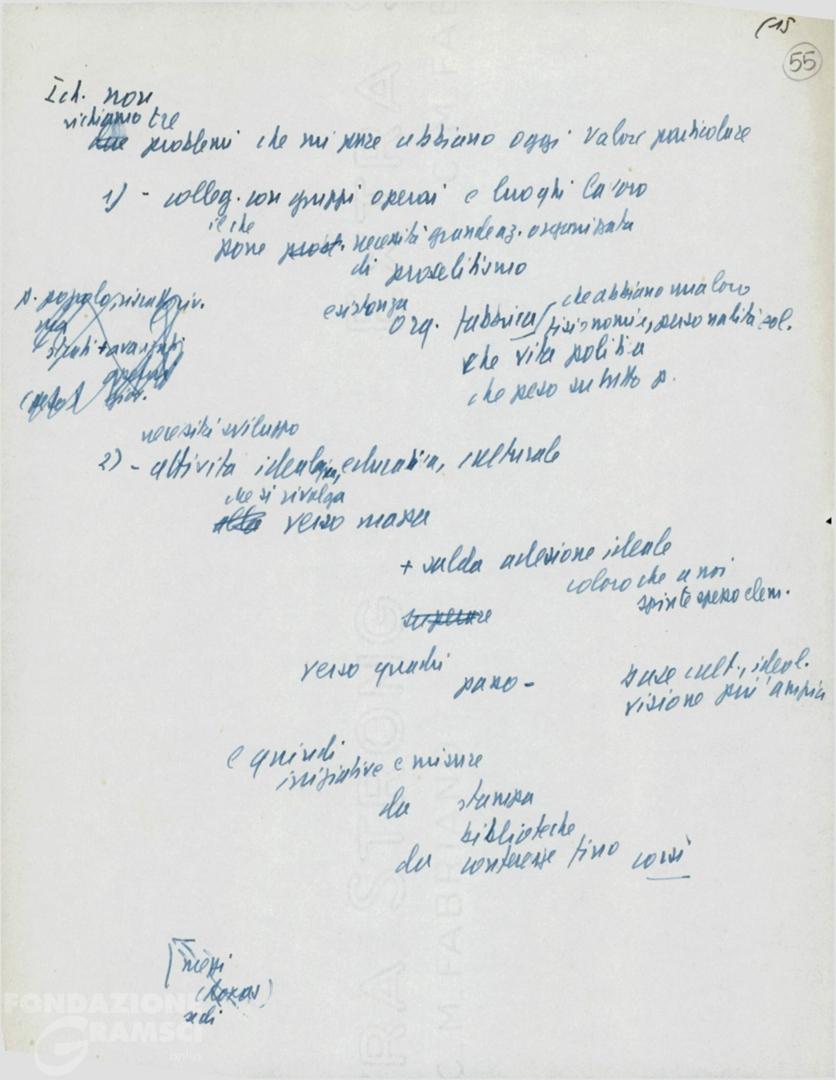 (15
55
Ich. non
richiamo tre
due problemi che mi pare abbiano oggi valore particolare
1) - colleg. con gruppi operai e luoghi lavoro
il che
pone necessità grande az. organizzata
di proselitismo
p. popolo,
ma
strati + avanzati
esistenza
org. fabbrica che abbiano una loro
fisionomia, personalità pol.
che vita politica
che peso su tutto p.
necessità sviluppo
2) - attività ideale, educativa, culturale
che si rivolga
alta verso massa
+ salda adesione ideale
coloro che a noi
spinte spesso elem.
superare
verso quadri
base cult., ideal.
visione più ampia
e quindi
iniziative e misure
da stampa
biblioteche
da conferenze fino corsi
mezzi
sedi
FONDAZIONE
GRAMSCI
onlus
EXTRA STRONG
C.M.FABRIANO